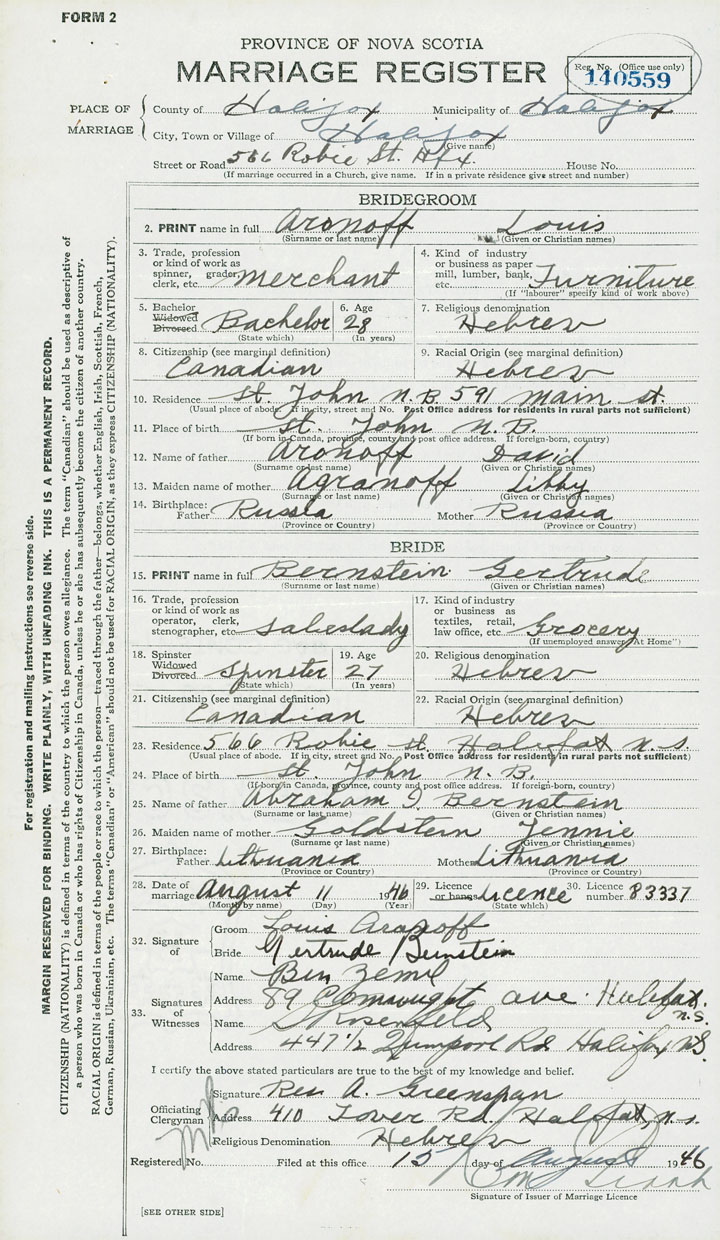 FORM 2
PROVINCE OF NOVA SCOTIA
MARRIAGE REGISTER
Reg. No. (Office use only)
140559
PLACE OF MARRIAGE
County of Halifax Municipality of Halifax
City, Town or Village of Halifax
(Give name)
Street or Road 566 Robie St. Hfx. House No.
(If marriage occurred in a Church, give name. If in a private residence give street and number)
BRIDEGROOM
2. PRINT name in full Aronoff Louis
(Surname or last name) (Given or Christian names)
3. Trade, profession or kind of work as spinner, grader, clerk, etc. merchant
4. Kind of industry or business as paper mill, lumber, bank, etc. Furniture
(If "labourer" specify kind of work above)
5. Bachelor Widowed Divorced Bachelor (State which)
6. Age 28 (In years)
7. Religious denomination Hebrew
8. Citizenship (see marginal definition) Canadian
9. Racial Origin (see marginal definition) Hebrew
10. Residence St. John N.B. 591 main st.
(Usual place of abode. If in city, street and No. Post Office address for residents in rural parts not sufficient)
11. Place of birth St. John N.B.
(If born in Canada, province, county and post office address. If foreign-born, country)
12. Name of father Aronoff David
(Surname or last name) (Given or Christian names)
13. Maiden name of mother Agranoff Libby
(Surname or last name) (Given or Christian names)
14. Birthplace: Father Russia Mother Russia
(Province or Country) (Province or Country)
BRIDE
15. PRINT name in full Bernstein Gertrude
(Surname or last name) (Given or Christian names)
16. Trade, profession or kind of work as operator, clerk, stenographer, etc. saleslady
17. Kind of industry or business as textiles, retail, law office, etc. Grocery
(If unemployed answer "At Home")
18. Spinster Widowed Divorced Spinster (State which)
19. Age 27 (In years)
20. Religious denomination Hebrew
21. Citizenship (see marginal definition) Canadian
22. Racial Origin (see marginal definition) Hebrew
23. Residence 566 Robie st. Halifax N.S.
(Usual place of abode. If in city, street and No. Post Office address for residents in rural parts not sufficient)
24. Place of birth St. John N.B.
(If born in Canada, province, county and post office address. If foreign-born, country)
25. Name of father Abraham I. Bernstein
(Surname or last name) (Given or Christian names)
26. Maiden name of mother Goldstein Jennie
(Surname or last name) (Given or Christian names)
27. Birthplace: Father Lithuania Mother Lithuania
(Province or Country) (Province or Country)
28. Date of marriage August 11 1946
(Month by name) (Day) (Year)
29. Licence or banns Licence (State which)
30. Licence number 83337
32. Signature of
Groom Louis Aronoff
Bride Gertrude Bernstein
33. Signatures of Witnesses
Name Ben Zemel
Address 89 Connaught ave. Halifax. N.S.
Name S Rosenfeld
Address 447 1/2 Quinpool Rd Halifax N.S.
I certify the above stated particulars are true to the best of my knowledge and belief.
Officiating Clergyman
Signature Rev A. Greenspan
Address 410 Tower Rd. Halifax, N.S.
Religious Denomination Hebrew
Registered No. Filed at this office 15 day of August 1946
Signature of Issuer of Marriage Licence
[SEE OTHER SIDE]
For registration and mailing instructions see reverse side.
MARGIN RESERVED FOR BINDING. WRITE PLAINLY, WITH UNFADING INK. THIS IS A PERMANENT RECORD.
CITIZENSHIP (NATIONALITY) is defined in terms of the country to which the person owes allegiance. The term "Canadian" should be used as descriptive of
a person who was born in Canada or who has rights of Citizenship in Canada, unless he or she has subsequently become the citizen of another country.
RACIAL ORIGIN is defined in terms of the people or race to which the person—traced through the father—belongs, whether English, Irish, Scottish, French,
German, Russian, Ukrainian, etc. The terms "Canadian" or "American" should not be used for RACIAL ORIGIN, as they express CITIZENSHIP (NATIONALITY).